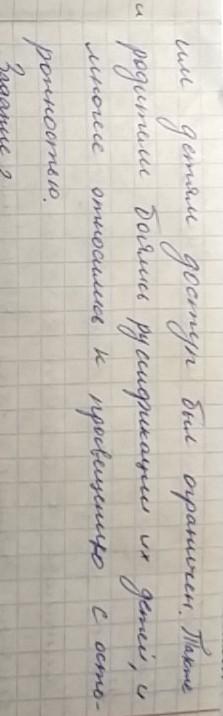 им детям доступ был ограничен. Также
родители боялись русификации их детей, и
многие относились к просвещению с осто-
рожностью.
Задание 2